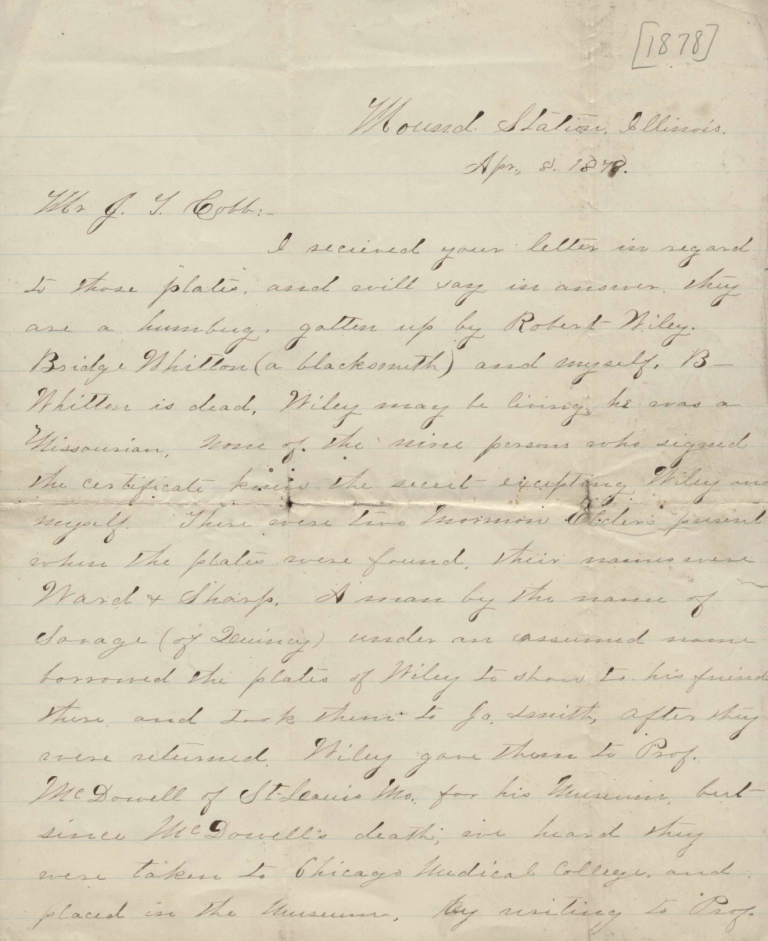 [1878]
Mound Station, Illinois.
Apr, 8. 1878.
Mr J. T. Cobb:-
I recieved your letter in regard
to those plates, and will say in answer, they
are a humbug, gotten up by Robert Wiley.
Bridge Whitton (a blacksmith) and myself. B-
Whitton is dead, Wiley may be living, he was a
Missourian, None of the nine persons who signed
the certificate knew the secret excepting Wiley and
myself. There were two Mormon Elders present
when the plates were found, their names were
Ward & Sharp. A man by the name of
Savage (of Quincy) under an assumed name
borrowed the plates of Wiley to show to his friend
there, and took them to Jo. Smith, after they
were returned, Wiley gave them to Prof.
McDowell of St. Louis Mo. for his Museum, but
since McDowell's death, ive heard they
were taken to Chicago Medical College, and
placed in the Museum, By writing to Prof.